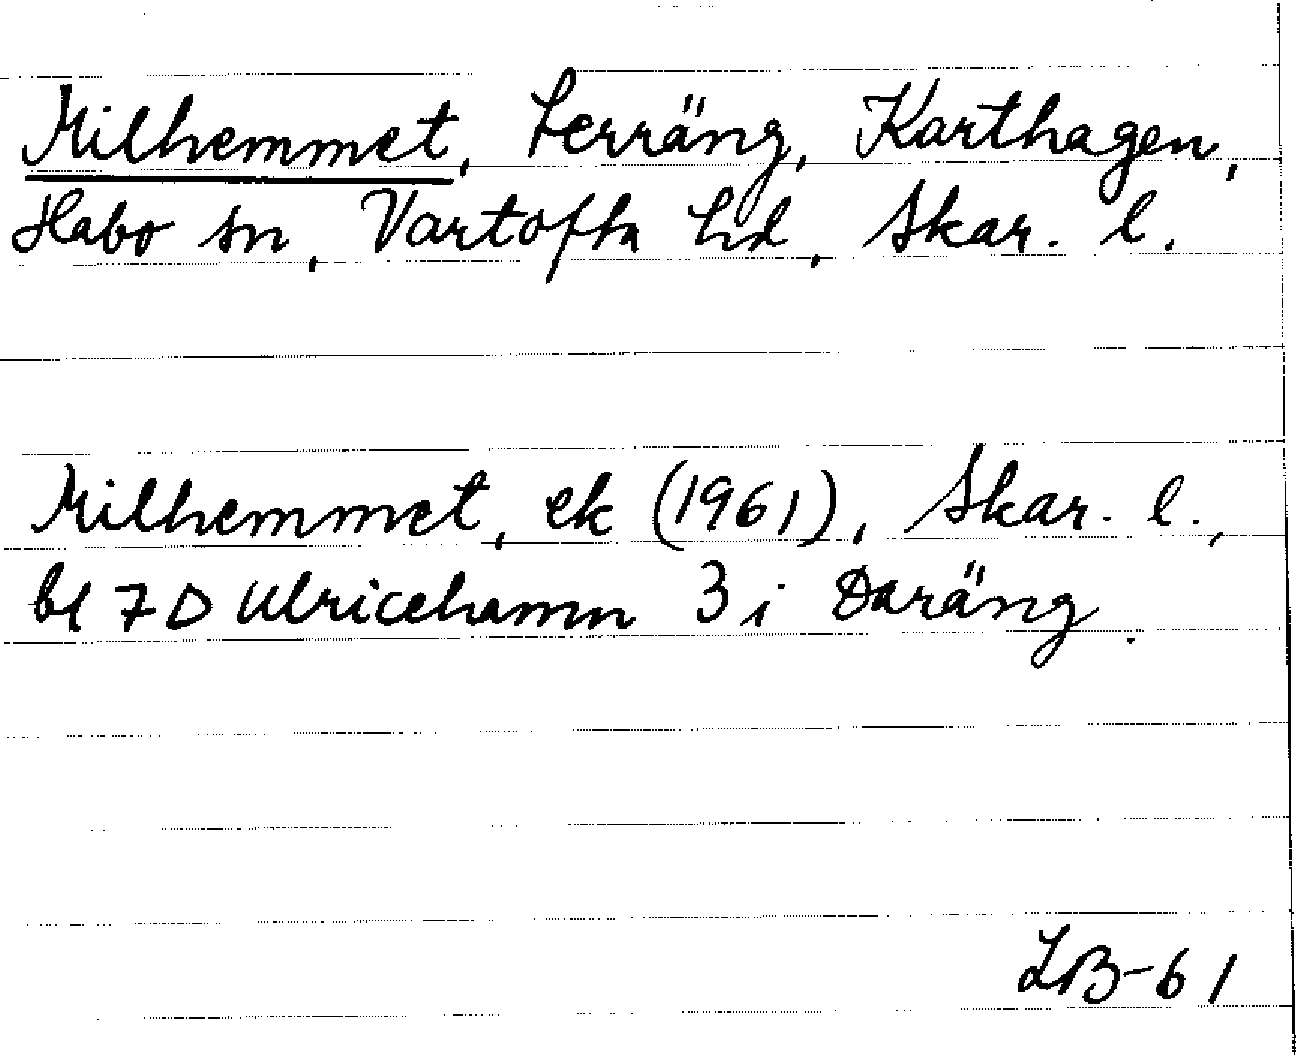 Milhemmet, terräng, Karthagen,
Habo sn, Vartofta hd, Skar. l.
Milhemmet, ek (1961), Skar. l.,
bl 7D Ulricehamn 3 i Daräng.
LB-61